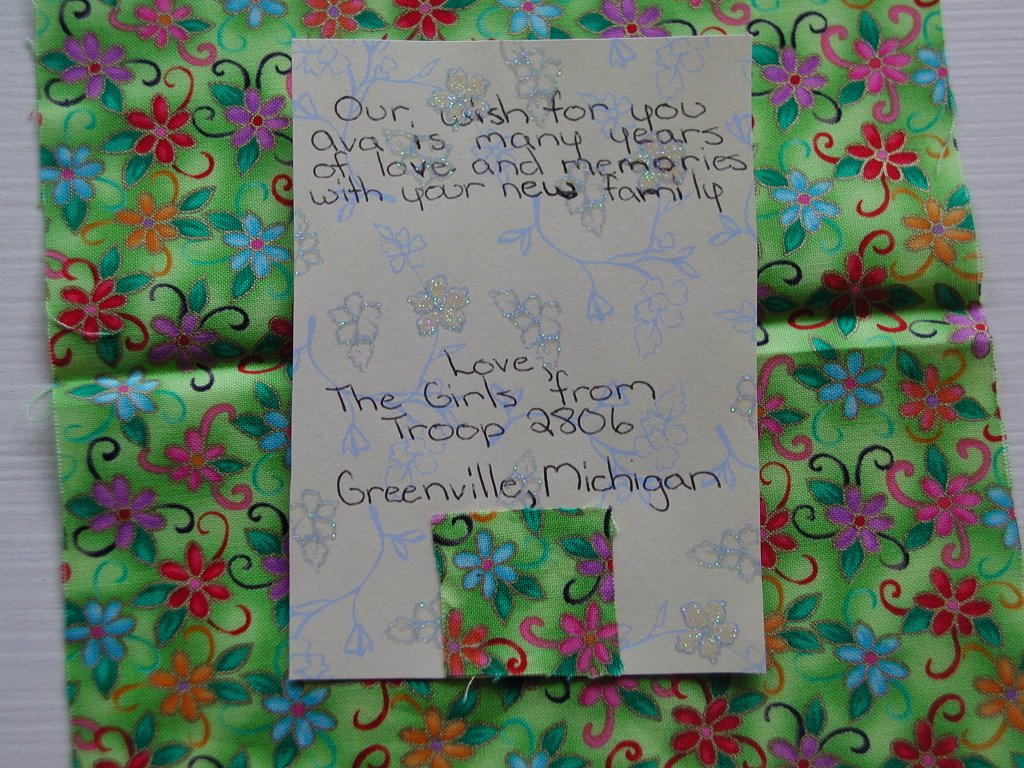 Our, wish for you
ava is many years
of love and memories
with your new family
Love,
The Girls from
Troop 2806
Greenville, Michigan